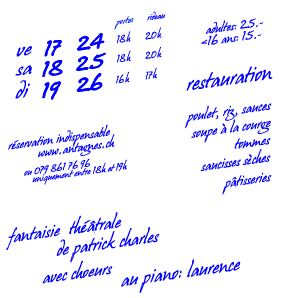 portes rideau
ve 17 24 18h 20h
sa 18 25 18h 20h
di 19 26 16h 17h
adultes: 25.-
<16 ans: 15.-
restauration
poulet, riz, sauces
soupe à la courge
tommes
saucisses sèches
pâtisseries
réservation indispensable
www.antagnes.ch
ou 079 861 76 96
uniquement entre 18h et 19h
fantaisie théâtrale
de patrick charles
avec choeurs
au piano: laurence